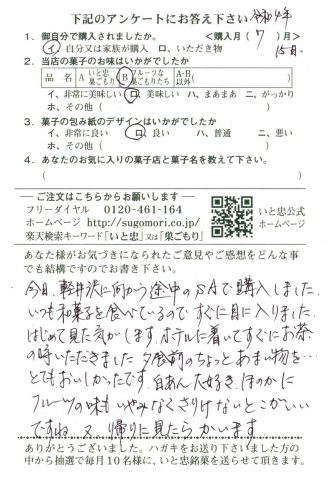 下記のアンケートにお答え下さい 令和4年
1. 御自分で購入されましたか。 <購入月(7)月> 15日
イ、自分又は家族が購入 ロ、いただき物
2. 当店の菓子のお味はいかがでしたか
品名 A いと忠巣ごもりたち B フルーツな巣ごもりたち A・B以外( )
イ、非常に美味しい ロ、美味しい ハ、まあまあ ニ、がっかり
ホ、その他( )
3. 菓子の包み紙のデザインはいかがでしたか
イ、非常に良い ロ、良い ハ、普通 ニ、悪い
ホ、その他( )
4. あなたのお気に入りの菓子店と菓子名を教えて下さい。
( )
ご注文はこちらからお願いします
フリーダイヤル 0120-461-164
ホームページ http://sugomori.co.jp/
楽天検索キーワード「いと忠」又は「巣ごもり」
いと忠公式
ホームページ
あなた様がお気づきになられたご意見やご感想をどんな事
でも結構ですのでお書き下さい。
今日、軽井沢に向かう途中のSAで購入しました
いつも和菓子を食べているので すぐに目に入りました
はじめて見た気がします。ホテルに着いてすぐにお茶
の時いただきました 夕食前のちょっとあまい物を…
とてもおいしかったです。白あん大好き、ほのかに
フルーツの味もいやみなくさりげないとこがいい
ですね。又、帰りに見たらかいます
ありがとうございました。ハガキをお送り下さいました方の
中から抽選で毎月10名様に、いと忠銘菓を送らせて頂きます。